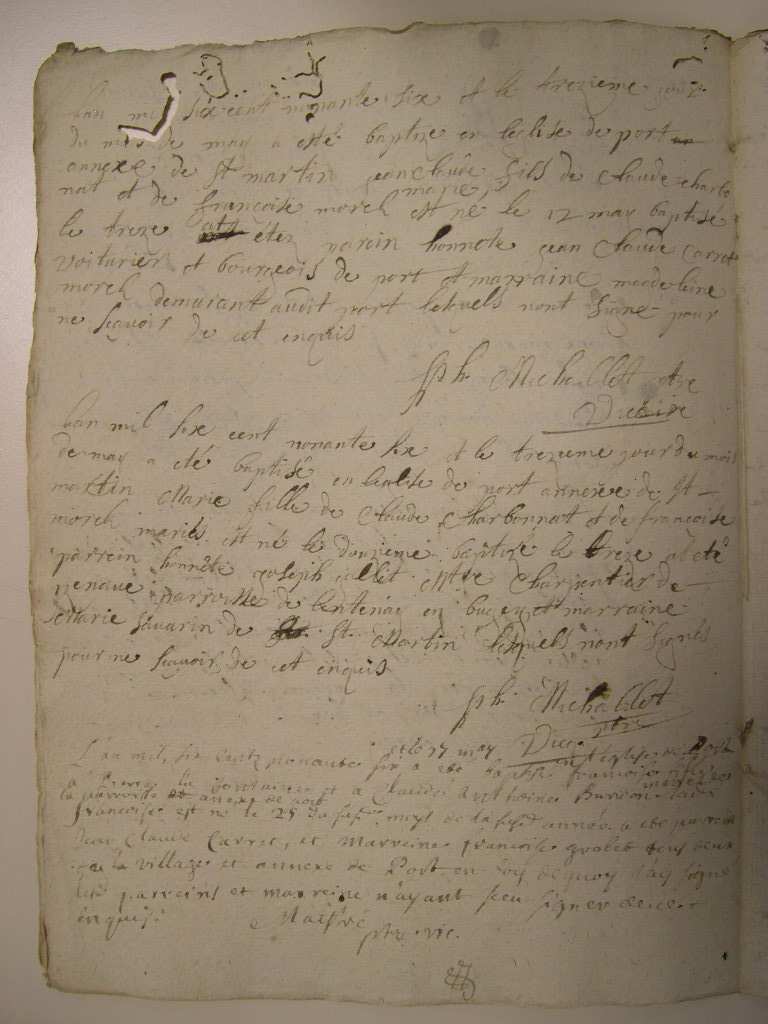 Lan mil six cent nonante six et le trezieme jour
du mois de may a esté baptize en leglise de port
annexe de St martin jean Claude fils de Claude charbo
nat et de françoise morel mariés est né le 12 may baptise
le treze etez parein honnete jean Claude Carret
voiturier et bourgeois de port et marraine madeleine
morel demurant audit port lequels nont signe pour
ne sçavoir de cet enquis
Ph Michallet ptre
Vicaire
Lan mil six cent nonante six et le trezieme jour du mois
de may a eté baptisé en leglise de port annexe de St
martin Marie fille de Claude Charbonnat et de françoise
morel mariés est né le douzieme baptizé le treze at eté
parrein honnête joseph Mtre Charpentier de
parroisse de lentenay en bugey et marraine
Marie Savarin de St Martin lesquels nont signés
pour ne sçavoir de cet enquis
Ph Michallet
ptre
L'an mil six centz nonante six et le 27 may a eté baptisé françoise fille
la parroisse et annexe de port et a Claudie Anthoinea mariez
françoise est né le 25 du mois de la année a eté parrein
Jean Claude Carret, et Marreine françoise tous deux
de la village et annexe de Port en foy de quoy j'ay signé
parreins et marreine n'ayant sceu signer de ce
enquis
ptre vic.